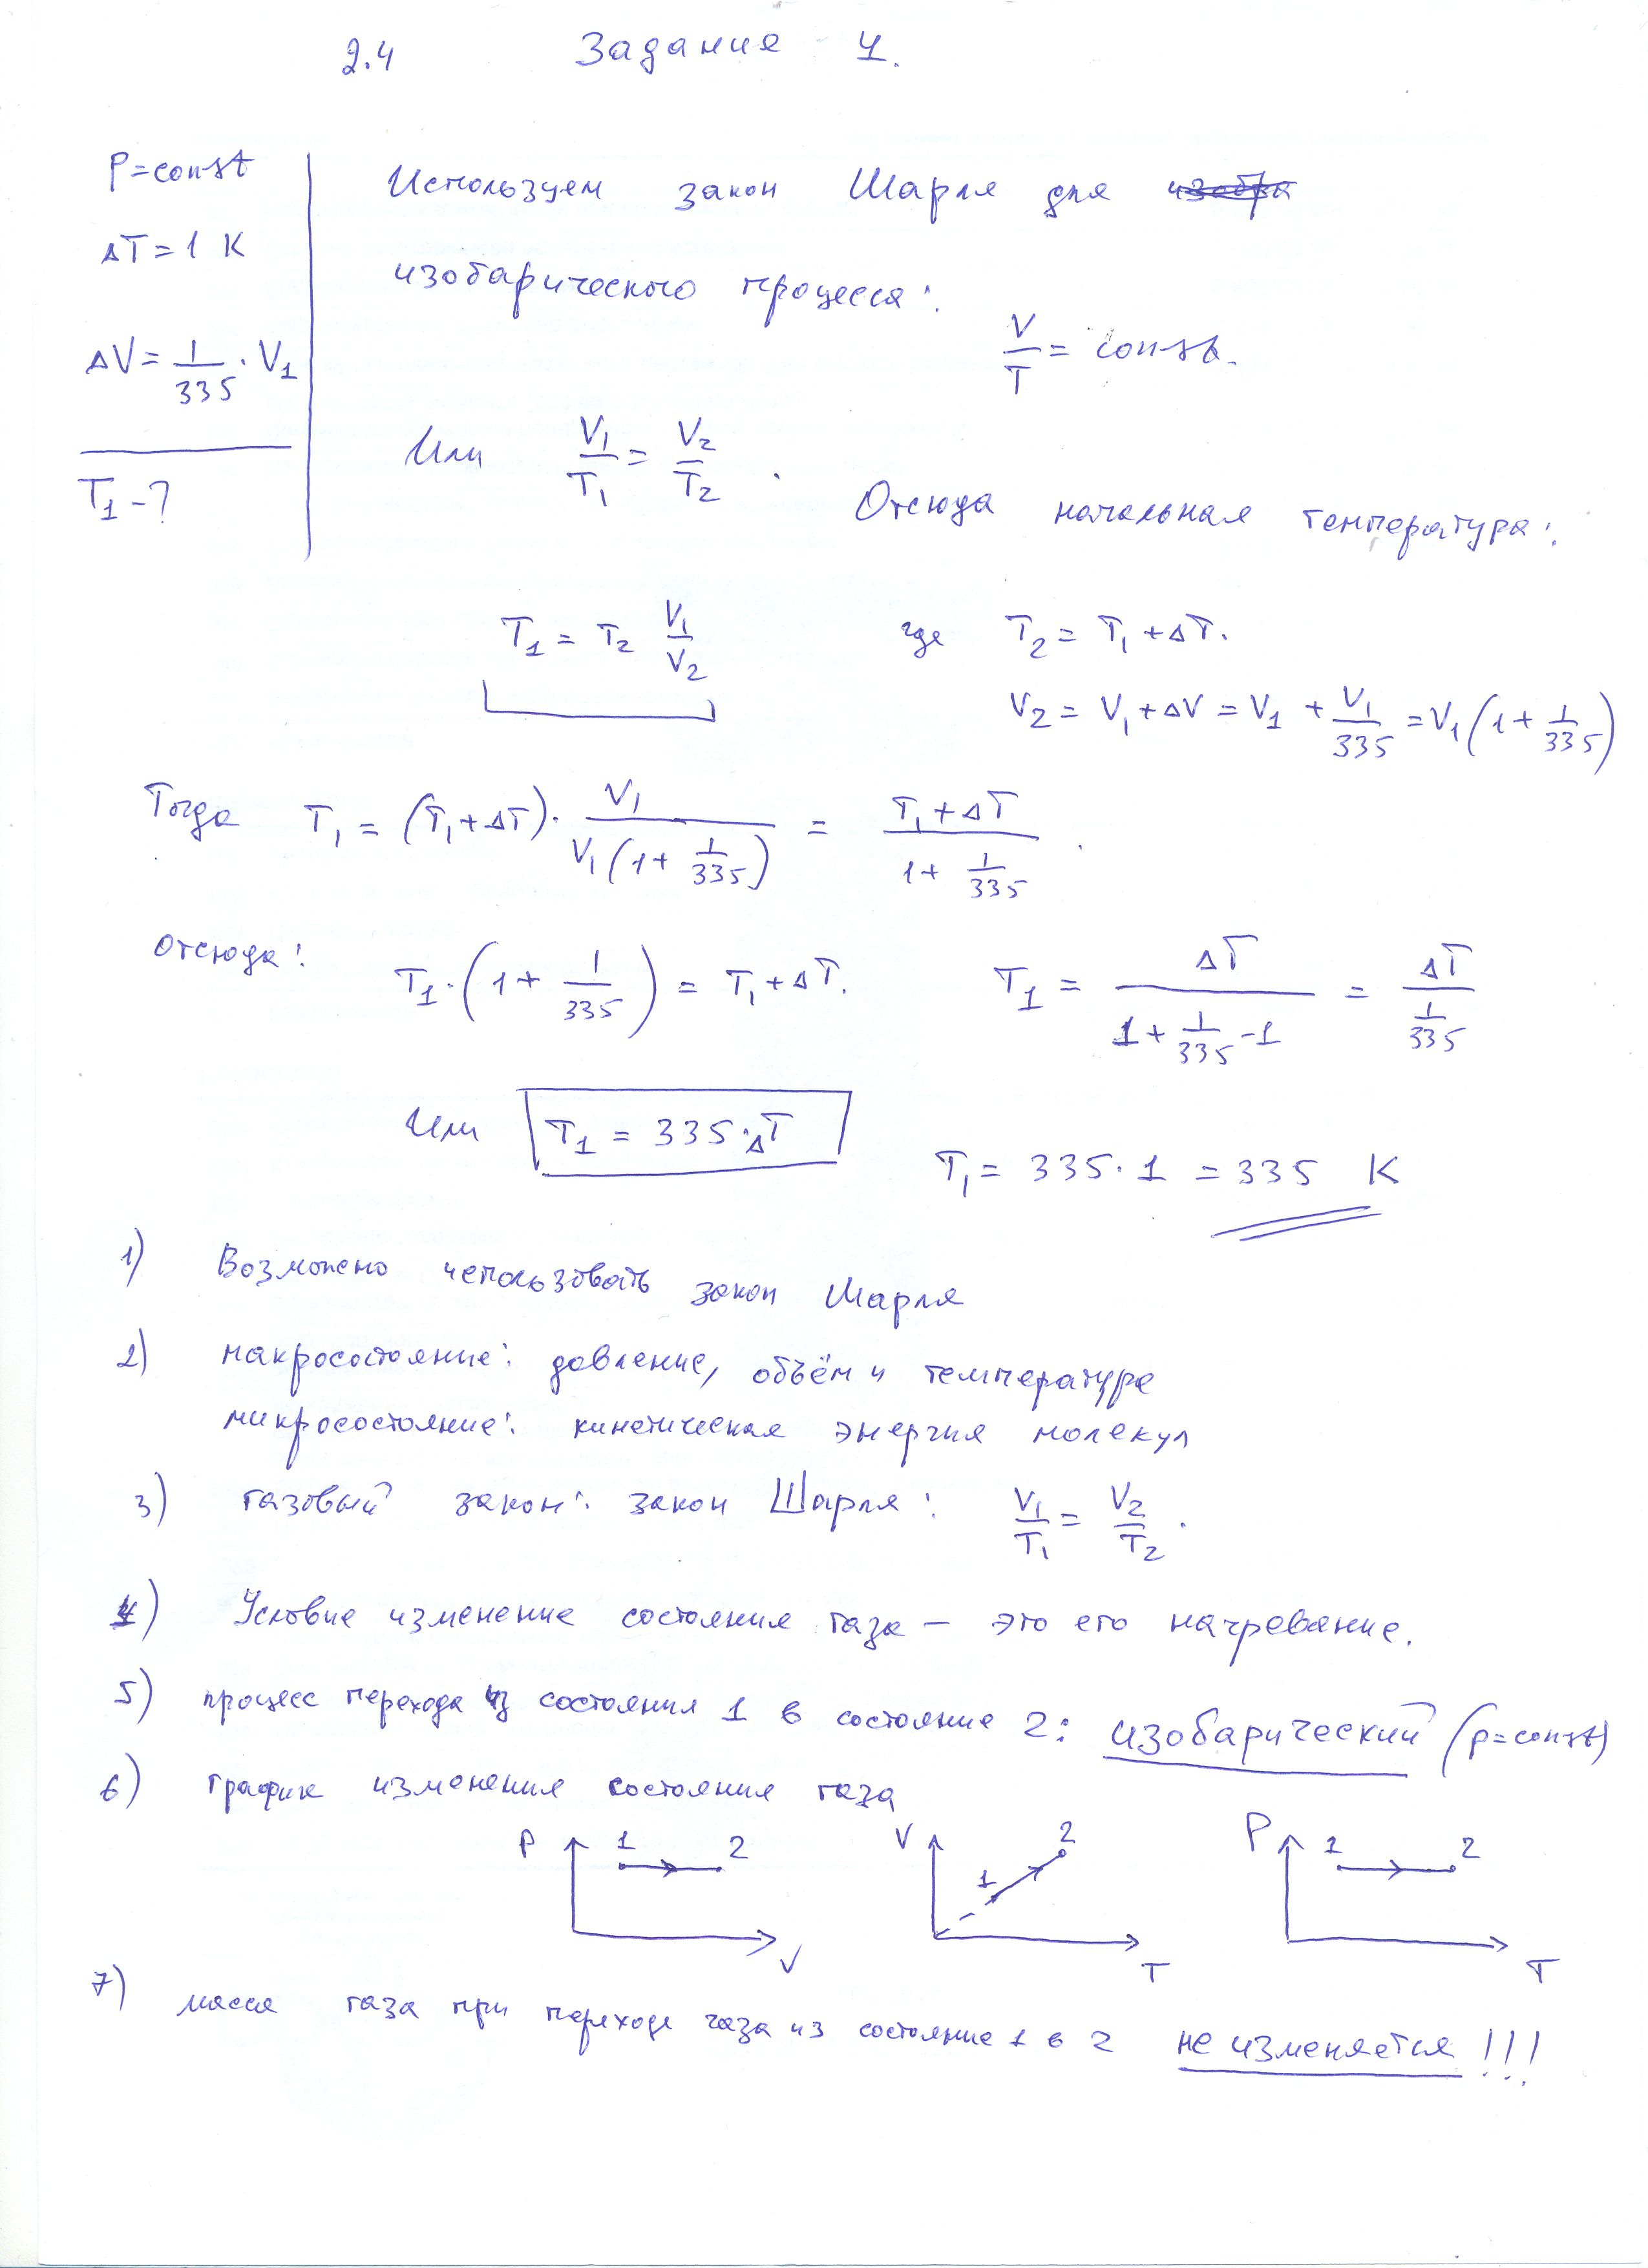 2.4 Задание 4.
P=const
ΔT=1 K
ΔV=1/335·V1
T1-?
Используем закон Шарля для
изобарического процесса:
V/T=const.
Или V1/T1=V2/T2.
Отсюда начальная температура:
T1=T2 V1/V2
где T2=T1+ΔT.
V2=V1+ΔV=V1+V1/335=V1(1+1/335)
Тогда T1=(T1+ΔT)·V1/V1(1+1/335)=T1+ΔT/1+1/335.
Отсюда: T1·(1+1/335)=T1+ΔT. T1=ΔT/1+1/335-1=ΔT/1/335
Или T1=335·ΔT
T1=335·1=335 K
1) Возможно использовать закон Шарля
2) макросостояние: давление, объём и температура
микросостояние: кинетическая энергия молекул
3) газовый закон: закон Шарля: V1/T1=V2/T2.
4) Условие изменение состояния газа – это его нагревание.
5) процесс перехода из состояния 1 в состояние 2: изобарический (p=const)
6) график изменения состояния газа
P 1 2 V
V 1 2 T
P 1 2 T
7) масса газа при переходе газа из состояние 1 в 2 не изменяется!!!